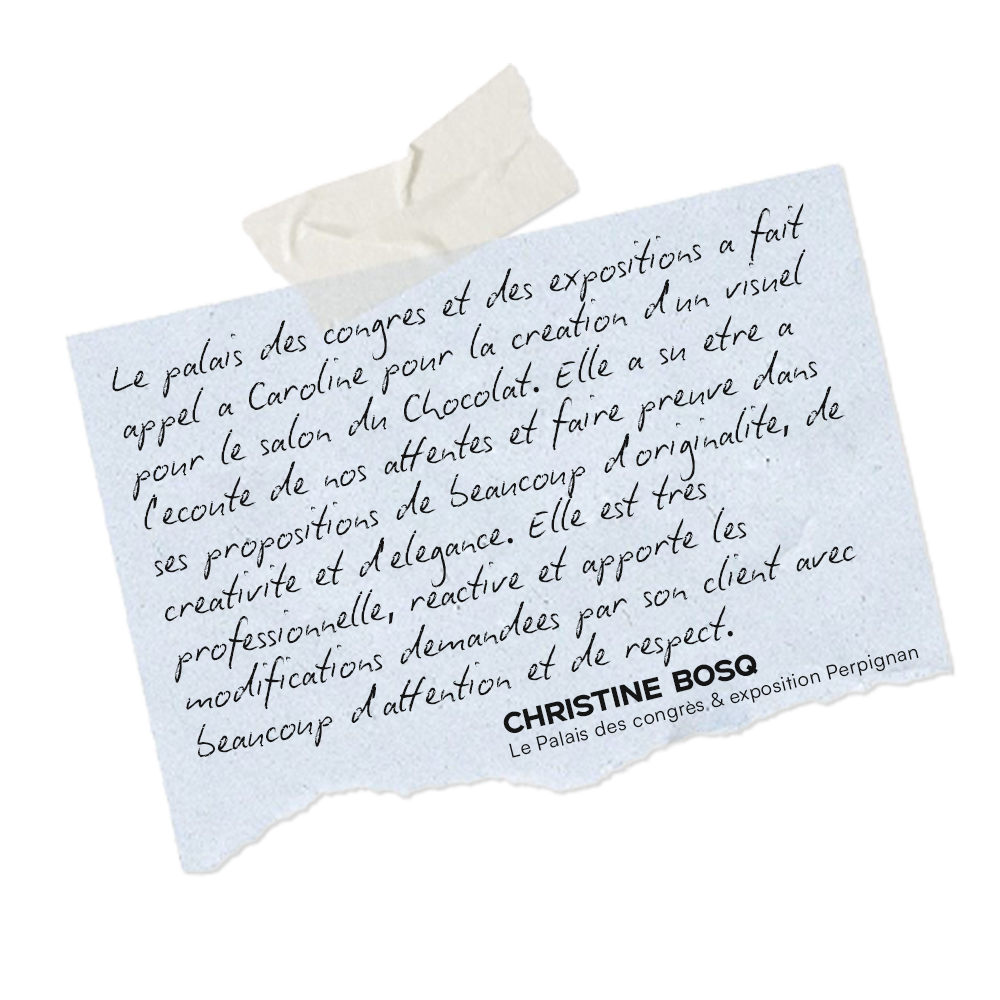 Le palais des congres et des expositions a fait
appel a Caroline pour la creation d'un visuel
pour le salon du Chocolat. Elle a su etre a
l'ecoute de nos attentes et faire preuve dans
ses propositions de beaucoup d'originalite, de
creativite et d'elegance. Elle est tres
professionnelle, reactive et apporte les
modifications demandees par son client avec
beaucoup d'attention et de respect.
CHRISTINE BOSQ
Le Palais des congrès & exposition Perpignan